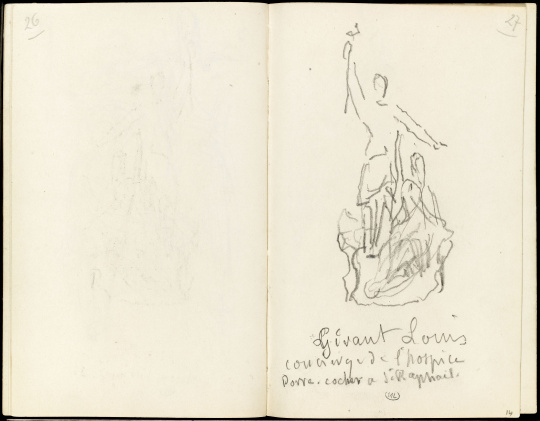 26
27
Givant Louis
concierge de l'hospice
Dorra. cocher a St Raphael.
14